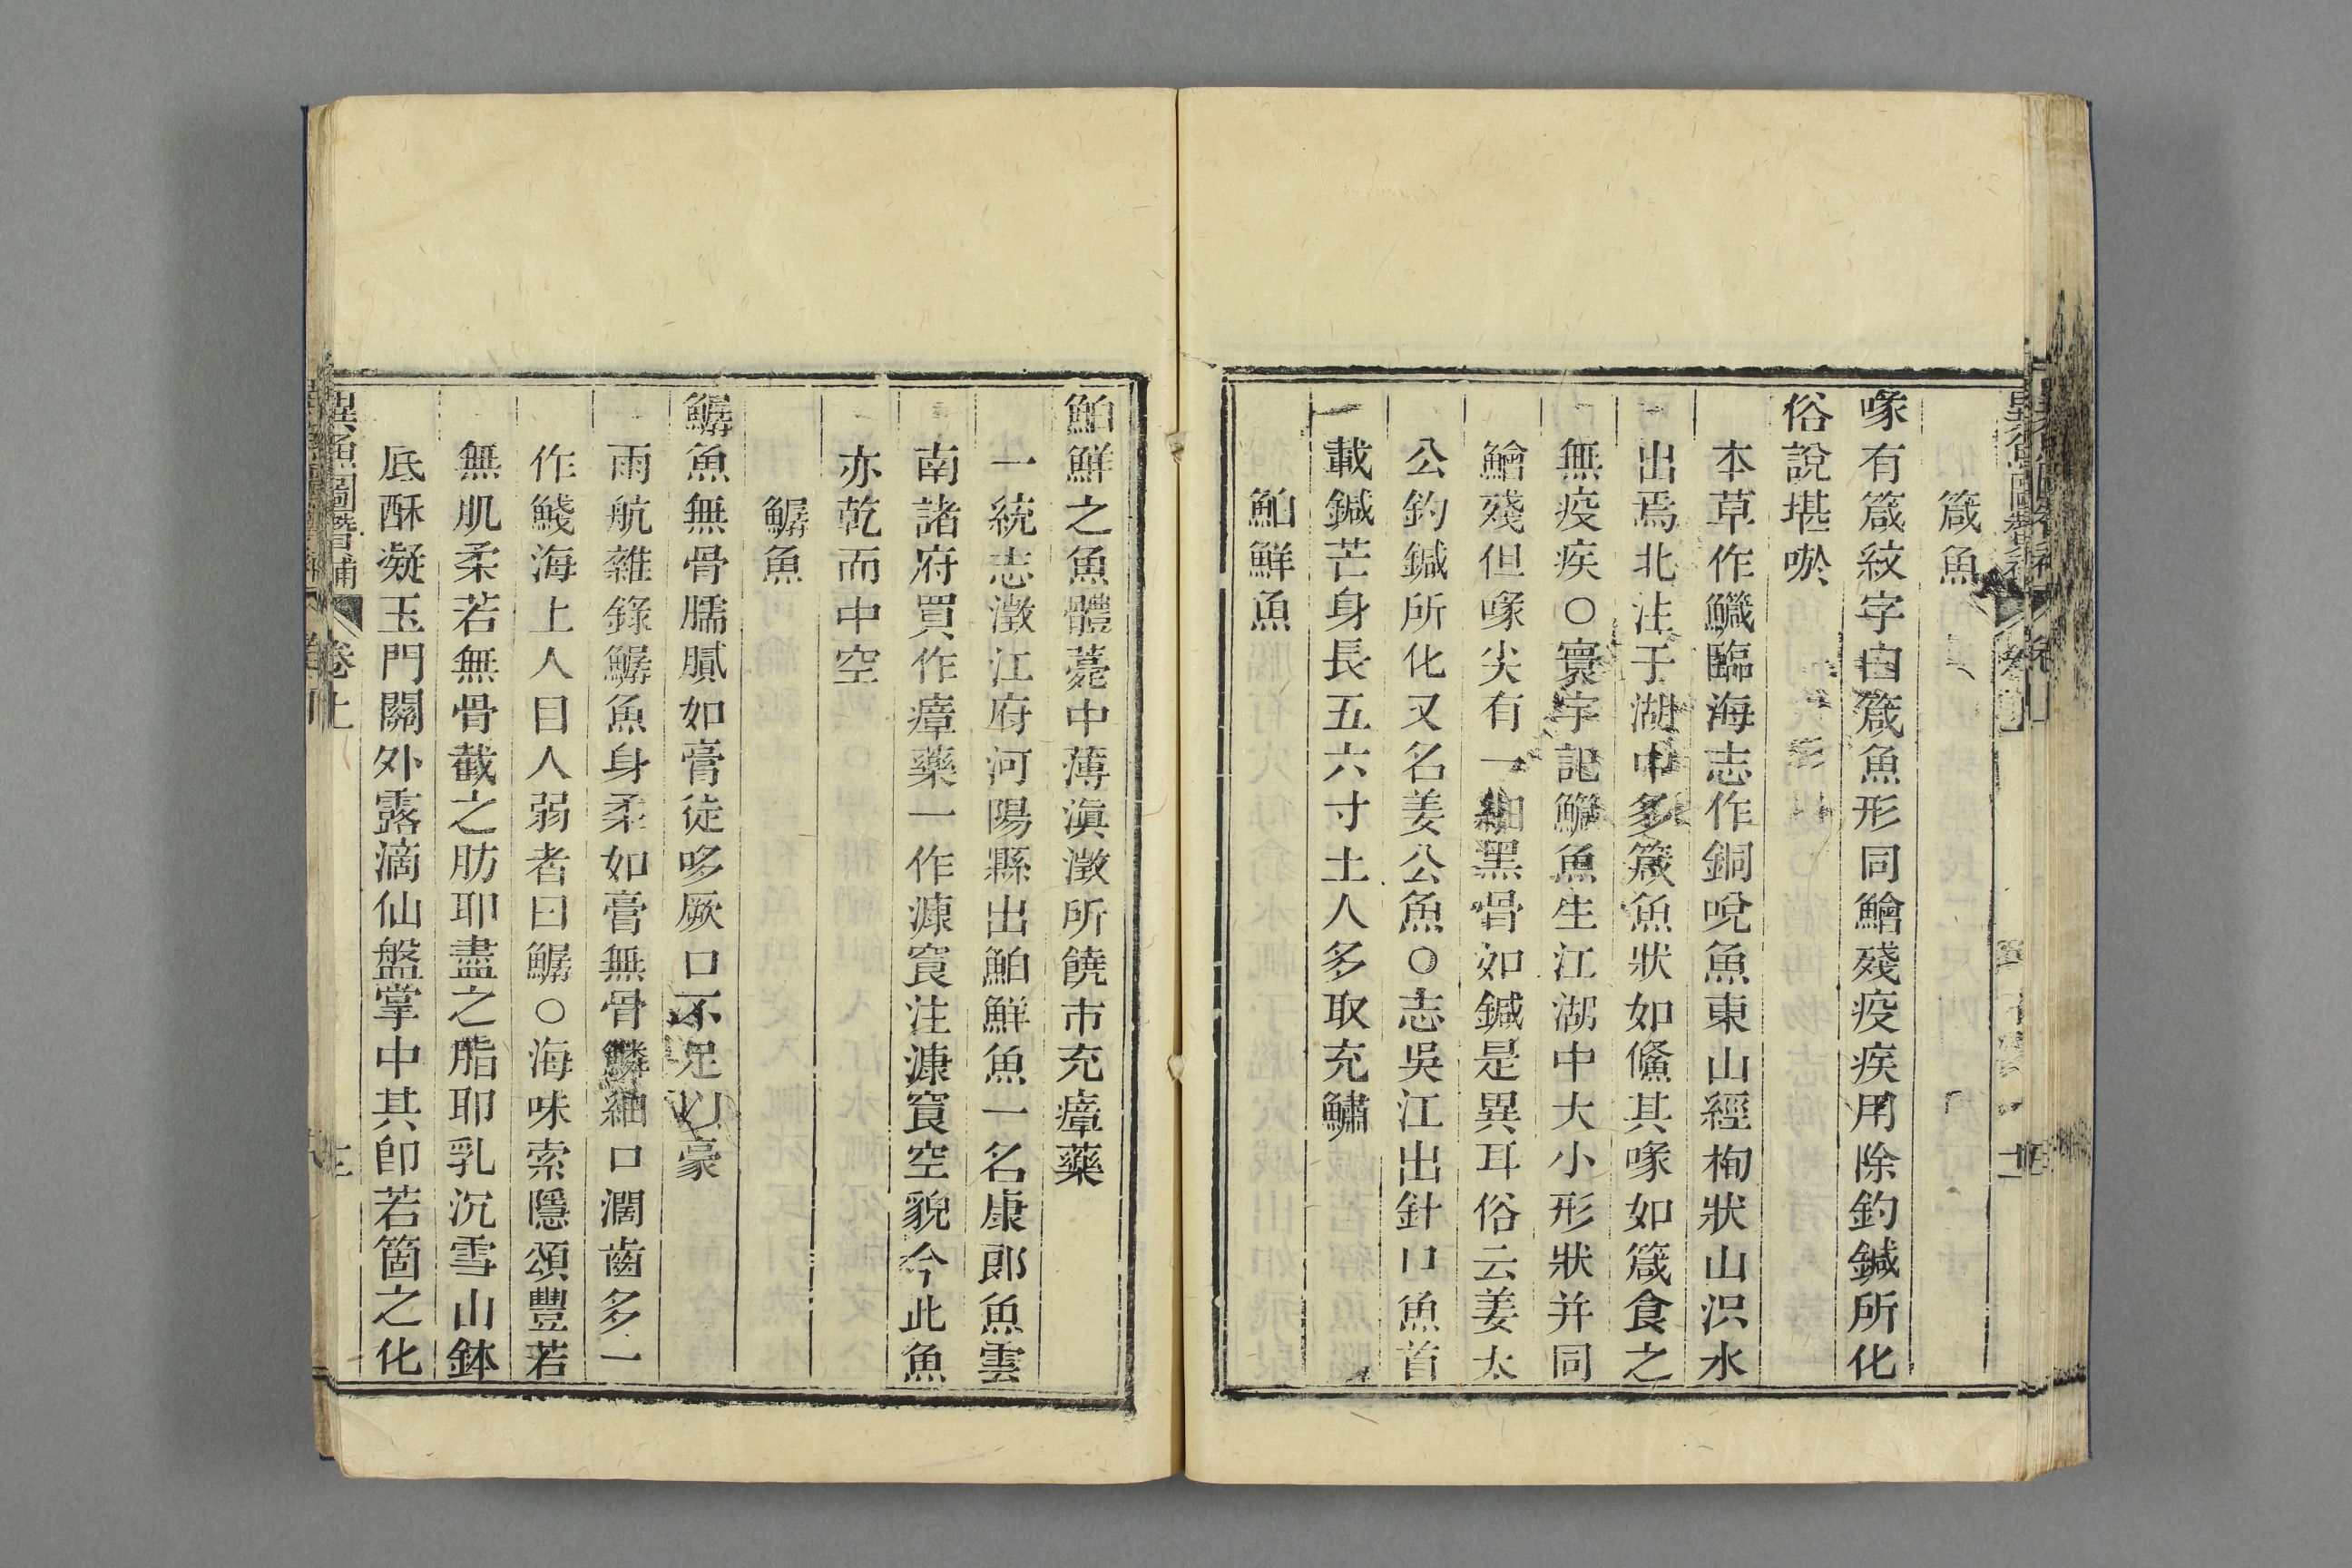 箴魚
喙有箴紋字自箴魚形同鱠殘疫疾用除釣鍼所化
俗說堪唹
本草作鱵臨海志作銅哾魚東山經栒狀山汦水
出焉北注于湖中多箴魚狀如鯈其喙如箴食之
無疫疾○寰宇記鱵魚生江湖中大小形狀并同
鱠殘但喙尖有一細黑骨如鍼是異耳俗云姜太
公釣鍼所化又名姜公魚○志吳江出針口魚首
載鍼芒身長五六寸土人多取充鱐
鮊鮮魚
鮊鮮之魚體薨中薄滇澂所饒市充瘴藥
一統志澂江府河陽縣出鮊鮮魚一名康郎魚雲
南諸府買作瘴藥一作漮㝗注漮㝗空貌今此魚
亦乾而中空
鱙魚
鱙魚無骨臑膩如膏徒哆厥口不足以豪
雨航雜錄鱙魚身柔如膏無骨鱗細口濶齒多一
作鯼海上人目人弱者曰鱙○海味索隱頌豐若
無肌柔若無骨截之肪耶盡之脂耶乳沉雪山鉢
底酥凝玉門關外露滴仙盤掌中其卽若箇之化
異魚圖贊補 卷上